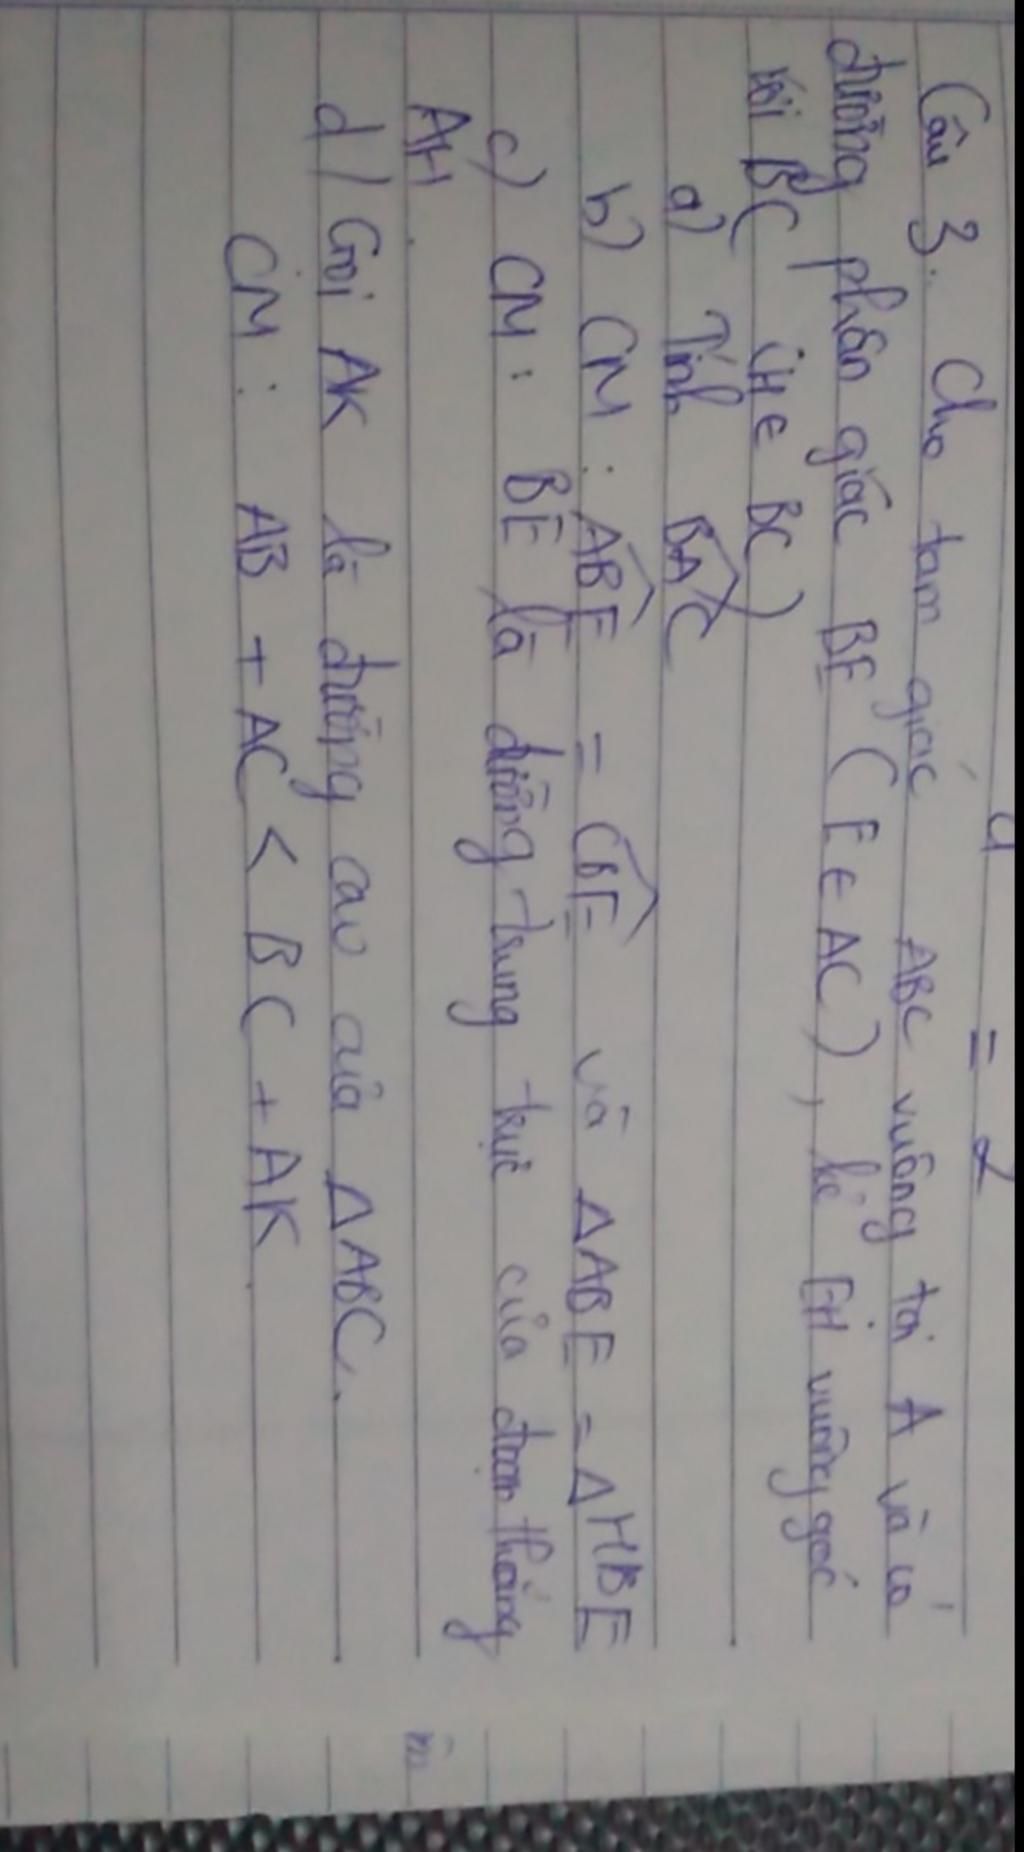 Câu 3. Cho tam giác ABC vuông tại A và có
đường phân giác BE (E ∈ AC), kẻ EH vuông góc
với BC (H ∈ BC)
a) Tính \widehat{BAC}
b) CM: \widehat{ABE} = \widehat{CBE} và ΔABE = ΔHBE
c) CM: BE là đường trung trực của đoạn thẳng
AH.
d) Gọi AK là đường cao của ΔABC.
CM: AB + AC < BC + AK.